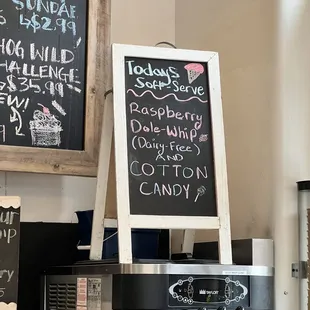 SUNDAE
$2.99
HOG WILD
CHALLENGE
$35.95
EW!
Todays
Soft-Serve
Raspberry
Dole-Whip
(Dairy-Free)
AND
COTTON
CANDY
our
hip
ry
TAYLOR